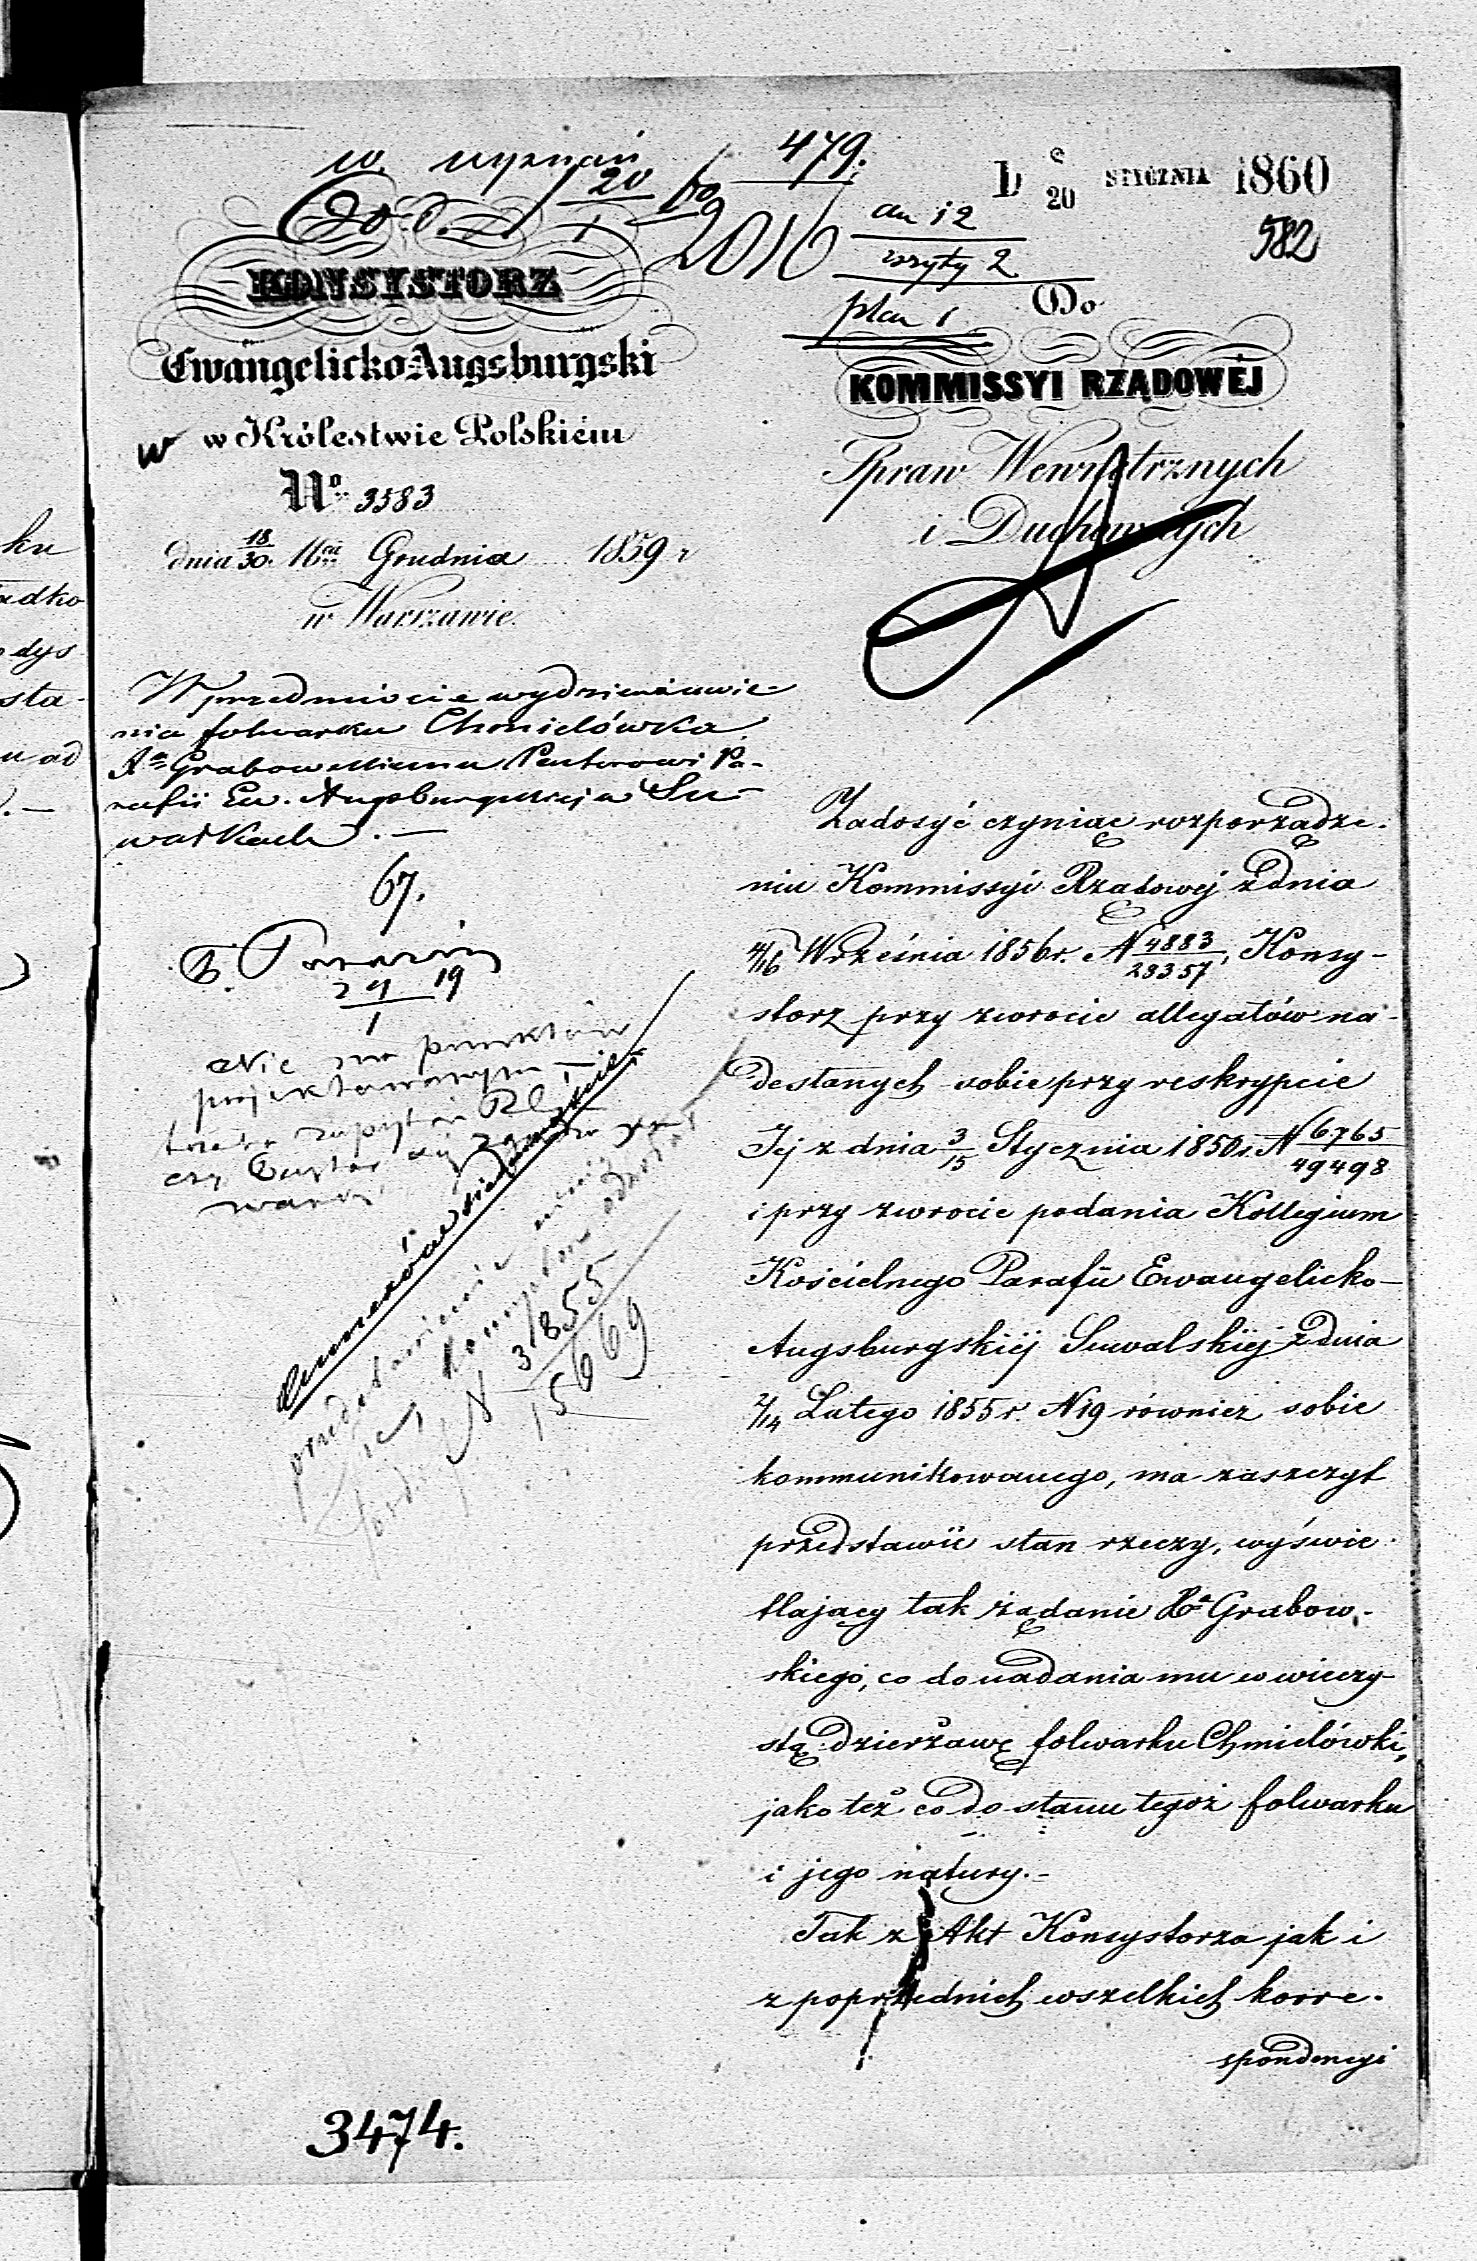 w. wyznań
479.
D 8/20 STYCZNIA 1860
582
20/1 60
2016
an 12
wzyty 2
plan 1
KONSYSTORZ
Ewangelicko-Augsburgski
w Królestwie Polskiém
No 3583
dnia 18/30 Grudnia 1859 r
w Warszawie.
W przedmiocie wydzierżawie-
nia folwarku Chmielówka
Xa Grabowskiemu Pastorowi Pa-
rafii Ew. Augsburgskiej w Su-
wałkach. —
67.
29/1 19
Nie ma punktów
projektowanym
31855/15669
3474.
Do
KOMMISSYI RZĄDOWÉJ
Spraw Wewnętrznych
i Duchownych
Zadosyć czyniąc rozporządze-
niu Kommissyi Rządowej z dnia
4/16 Września 1856 r. N 4883/28357, Konsy-
storz przy zwrocie allegatów na-
desłanych sobie przy reskrypcie
Jej z dnia 3/15 Stycznia 1850 r. N 6765/49498
i przy zwrocie podania Kollegium
Kościelnego Parafii Ewangelicko-
Augsburgskiéj Suwalskiéj z dnia
2/14 Lutego 1855 r. N 19 również sobie
kommunikowanego, ma zaszczyt
przedstawić stan rzeczy, wyświe-
tlający tak żądanie Xa Grabow-
skiego, co do nadania mu w wieczy-
stą dzierżawę folwarku Chmielówki,
jako też co do stanu tegoż folwarku
i jego natury. -
Tak z Akt Konsystorza jak i
z poprzednich wszelkich korre-
spondencyi